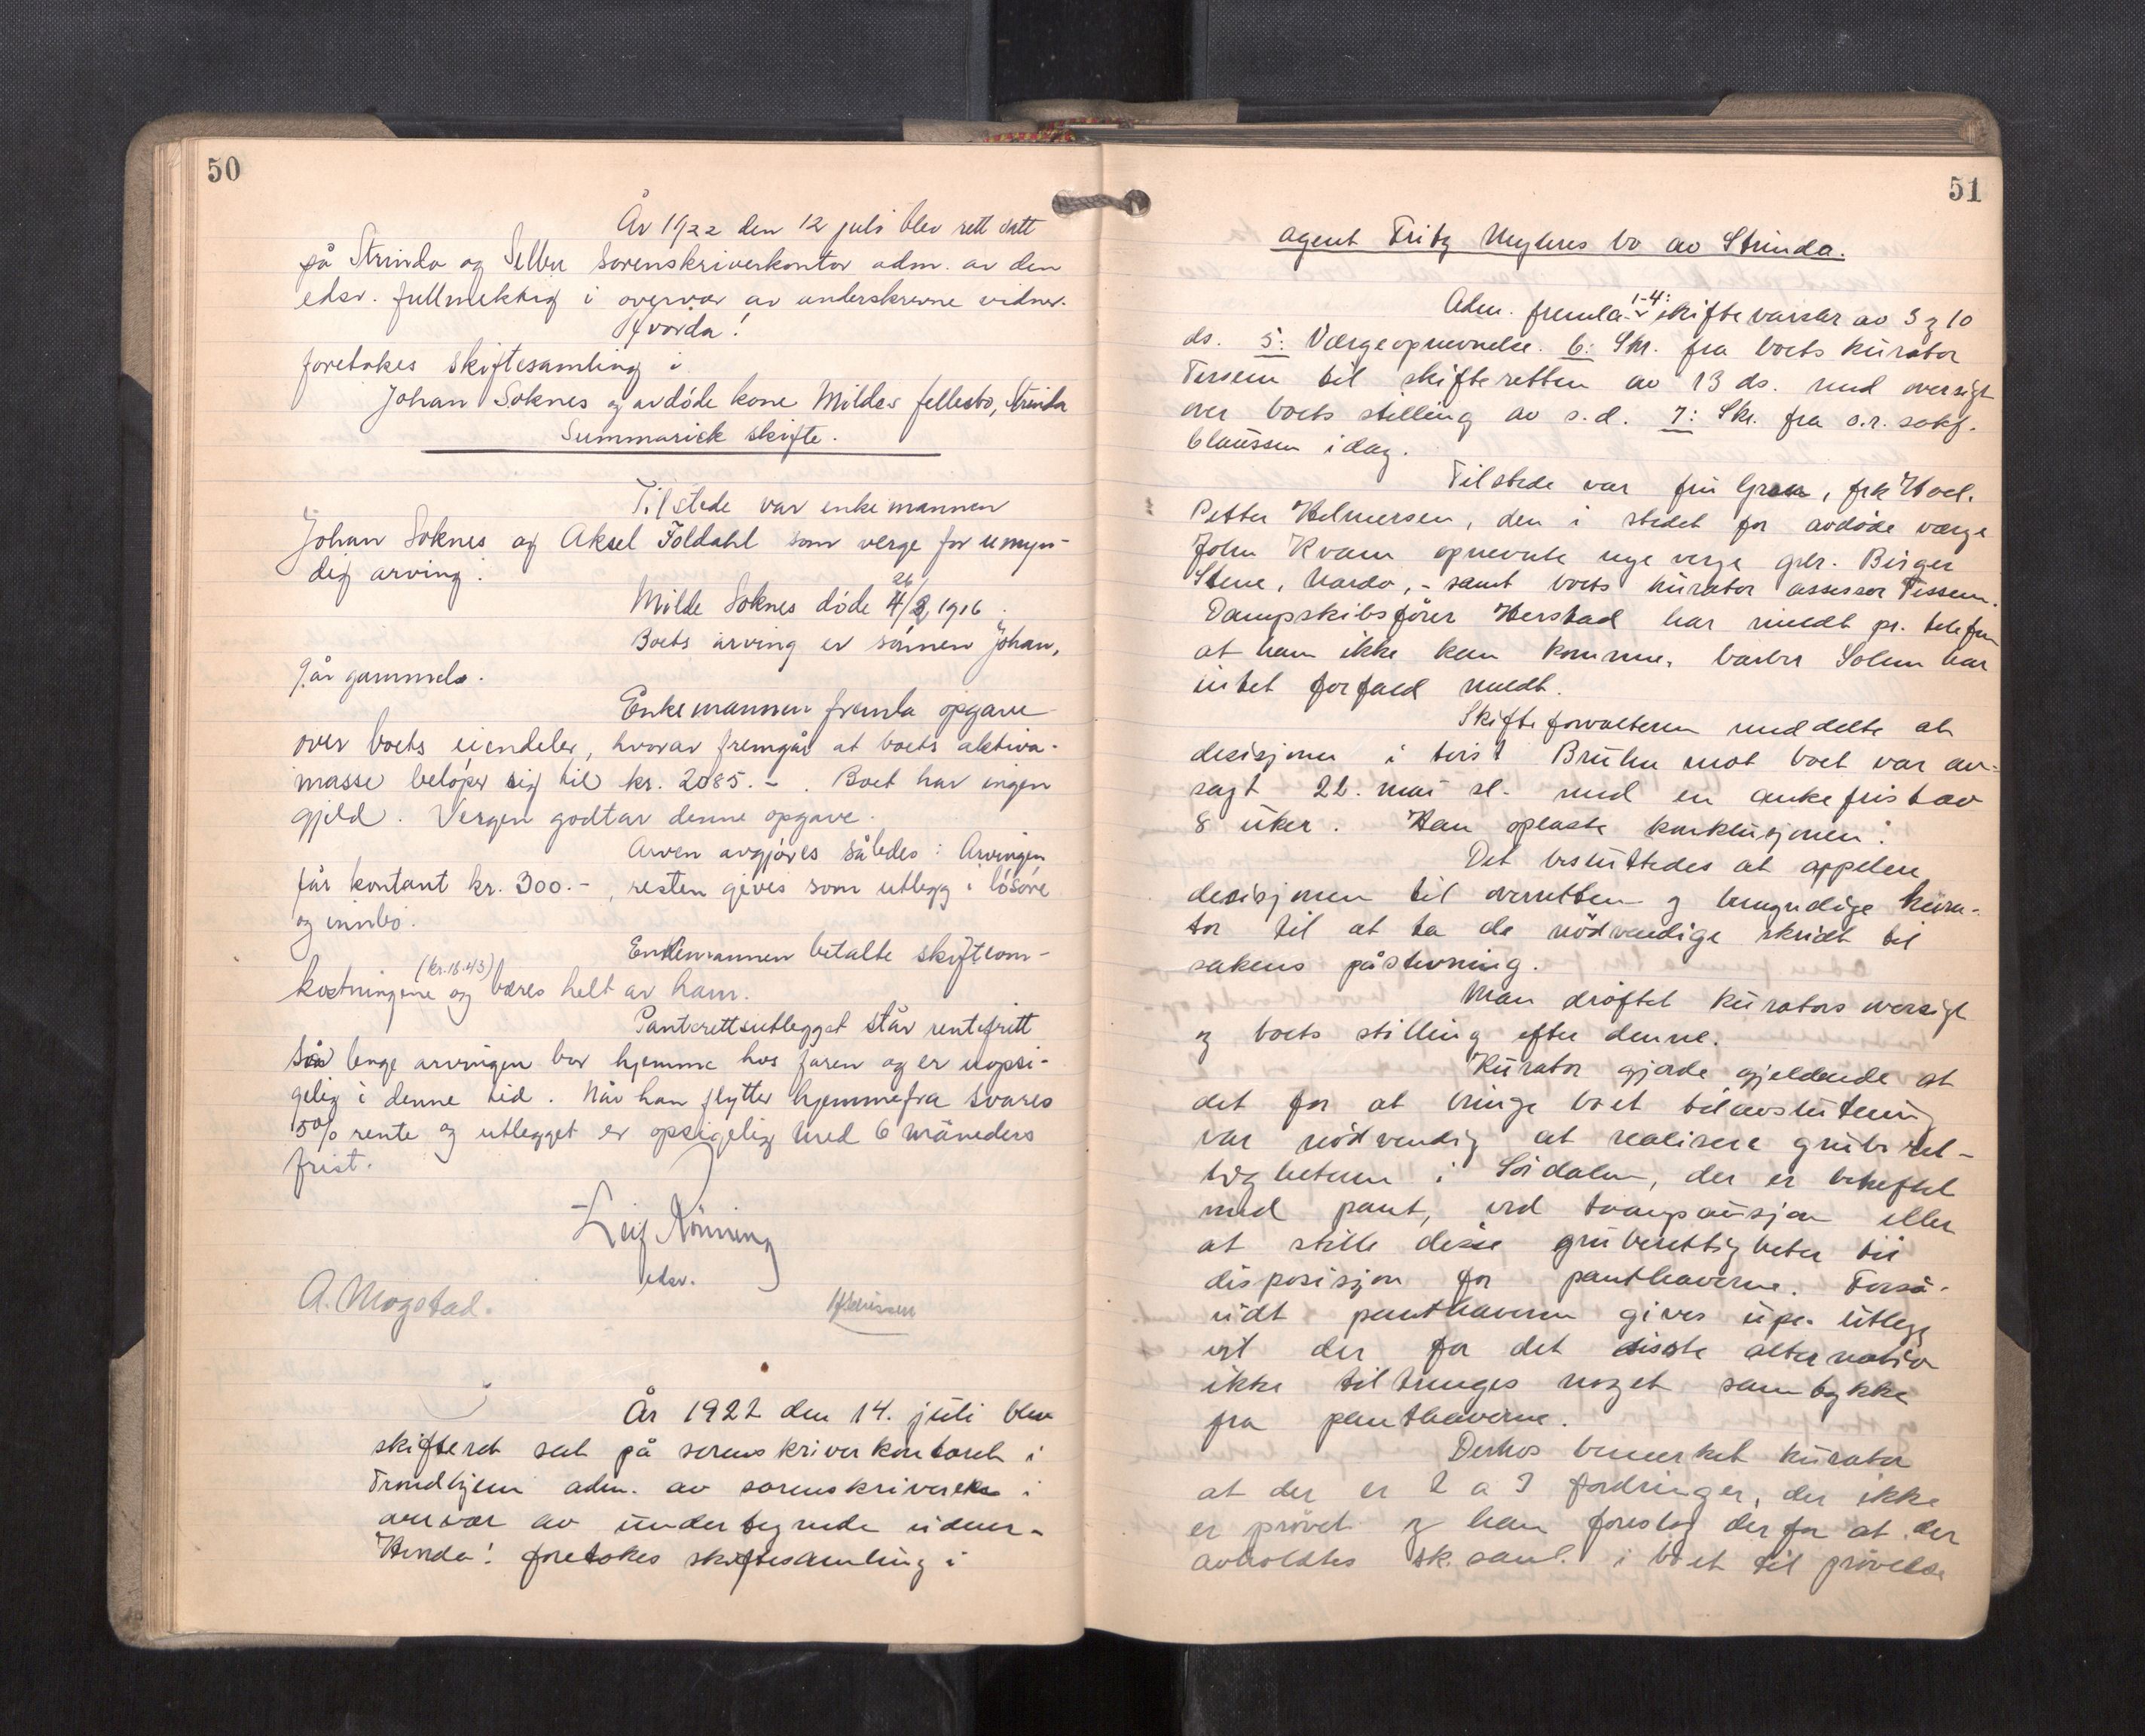 50
År 1922 den 12 juli blev rett satt
på Strinda og Selbu sorenskriverkontor adm. av den
edsv. fullmektig i overvær av underskrevne vidner.
Hvorda!
foretokes skiftesamling i
Johan Soknes og avdøde kone Mildes fellesbo, Strinda
Summarisk skifte.
Tilstede var enkemannen
Johan Soknes og Aksel Foldahl som verge for umyn-
dig arving.
Milde Soknes døde 26/ 1916.
Boets arving er sønnen Johan,
9 år gammel.
Enkemannen fremla opgave
over boets eiendeler, hvorav fremgår at boets aktiva-
masse beløper sig til kr. 2085.-. Boet har ingen
gjeld. Vergen godtar denne opgave.
Arven avgjøres således: Arvingen
får kontant kr. 300.-, resten gives som utlegg i løsøre
og innbo.
Enkemannen betalte skifteom-
kostningene (kr. 16.43) og bæres helt av ham.
Panterettsutlegget står rentefritt
så lenge arvingen bor hjemme hos faren og er uopsi-
gelig i denne tid. Når han flytter hjemmefra svares
5% rente og utlegget er opsigelig med 6 måneders
frist.
Leif Rönning
edsv.
A. Mogstad.
År 1922 den 14. juli blev
skifteret sat på sorenskriverkontoret i
Trondhjem adm. av sorenskriveren i
overvær av undertegnede vidner-
Hvorda! foretokes skiftesamling i
51
agent Fritz Meyers bo av Strinda.
Adm. fremla 1-4: skiftevarsler av 3 og 10
ds. 5: Værgeopnevnelse. 6: Skr. fra boets kurator
Tessem til skifteretten av 13 ds. med oversigt
over boets stilling av s.d. 7: Skr. fra o.r. sakf.
Claussen idag.
Tilstede var fru Gram, frk Hoel.
Petter Helmersen, den i stedet for avdøde værge
John Kvam opnevnte nye verge gbr. Birger
Stene, Nardo, - samt boets kurator assessor Tessem.
Dampskibsfører Herstad har meldt pr. telefon
at han ikke kan komme. Barber Solem har
intet forfald meldt.
Skifteforvalteren meddelte at
desisjonen i tvist Bruhn mot boet var av-
sagt 22. mai sl. med en ankefrist av
8 uker. Han oplæste konklusjonen.
Det besluttedes at appelere
desisjonen til overretten og bemyndige kura-
tor til at ta de nödvendige skridt til
sakens påstevning.
Man drøftet kurators oversigt
og boets stilling efter denne.
Kurator gjorde gjeldende at
det for at bringe boet til avslutning
var nödvendig at realisere gruberet-
tigheterne i Sördalen, der er beheftet
med pant, ved transport eller
at stille disse gruberettigheter til
disposisjon for panthaverne. Forså-
vidt panthaverne gives uper utlegg
vil der for det sisste alternativ
ikke tiltrenges noget samtykke
fra panthaverne.
Derhos bemerket kurator
at der er 2 a 3 fordringer, der ikke
er prøvet og han foreslog derfor at der
avholdtes sk.saml. i boet til prövelse